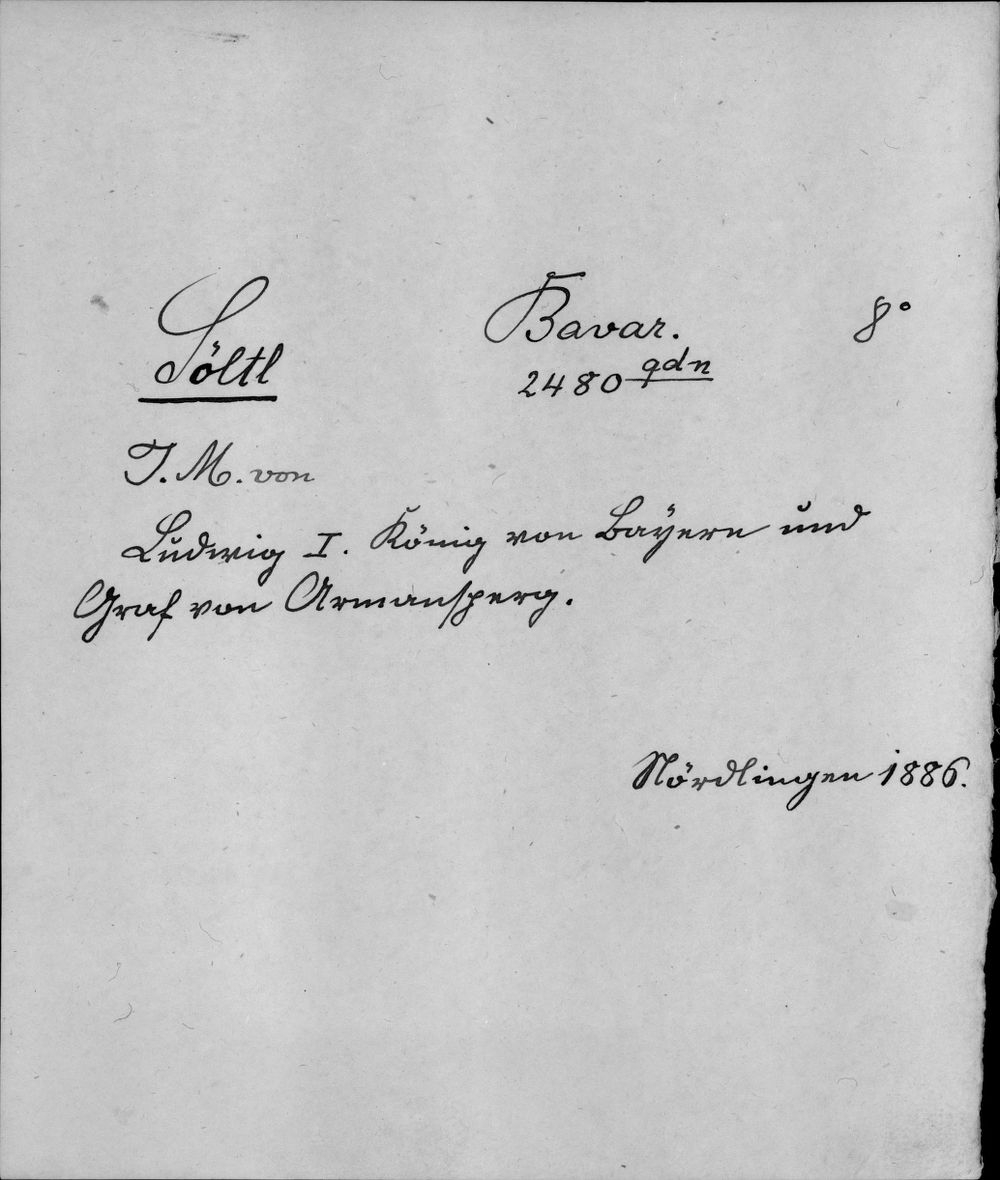 Söltl Bavar. 8°
2480 qdn
J. M. von
Ludwig I. König von Bayern und
Graf von Armansperg.
Nördlingen 1886.